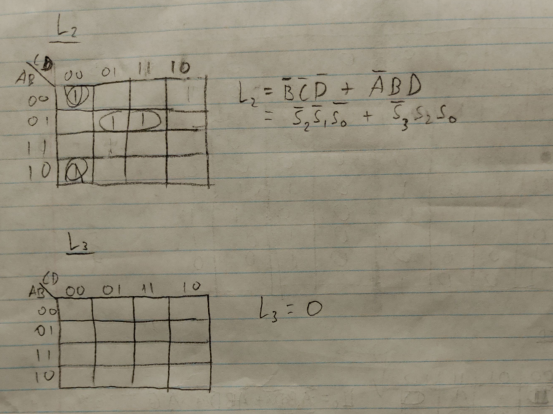 L₂
CD
AB 00 01 11 10
00 1
01 1 1
11
10 1
L₂ = B̅C̅D̅ + A̅BD
= S̅₂S̅₁S̅₀ + S̅₃S₂S₀
L₃
CD
AB 00 01 11 10
00
01
11
10
L₃ = 0